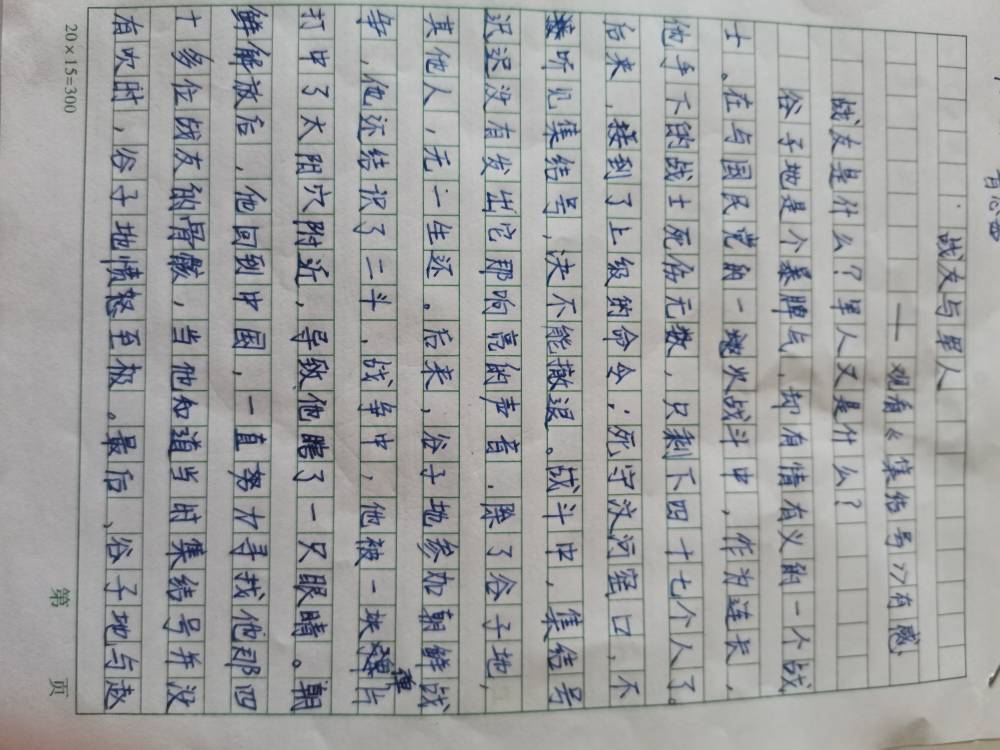 战友与军人
——观看《集结号》有感
战友是什么？军人又是什么？
谷子地是个暴脾气，却有情有义的一个战
士。在与国民党的一次战斗中，作为连长，
他手下的战士死伤无数，只剩下四十七个人了。
后来，接到了上级的命令：死守汶河窑口，不
听见集结号，决不能撤退。战斗中，集结号
迟迟没有发出它那响亮的声音，除了谷子地，
其他人，无一生还。后来，谷子地参加朝鲜战
争，他还结识了二斗，战争中，他被一块弹片
打中了太阳穴附近，导致他瞎了一只眼睛。朝
鲜解放后，他回到中国，一直努力寻找他那四
十多位战友的骨骸，当他知道当时集结号并没
有吹时，谷子地愤怒至极。最后，谷子地与赵
20×15=300
第 页